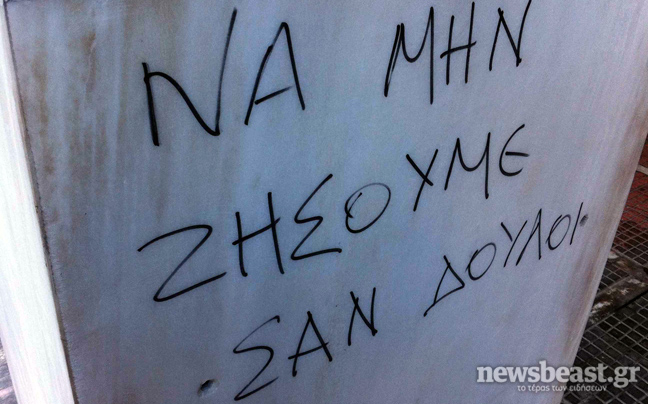 ΝΑ ΜΗΝ
ΖΗΣΟΥΜΕ
ΣΑΝ ΔΟΥΛΟΙ.
newsbeast.gr
το τέρας των ειδήσεων